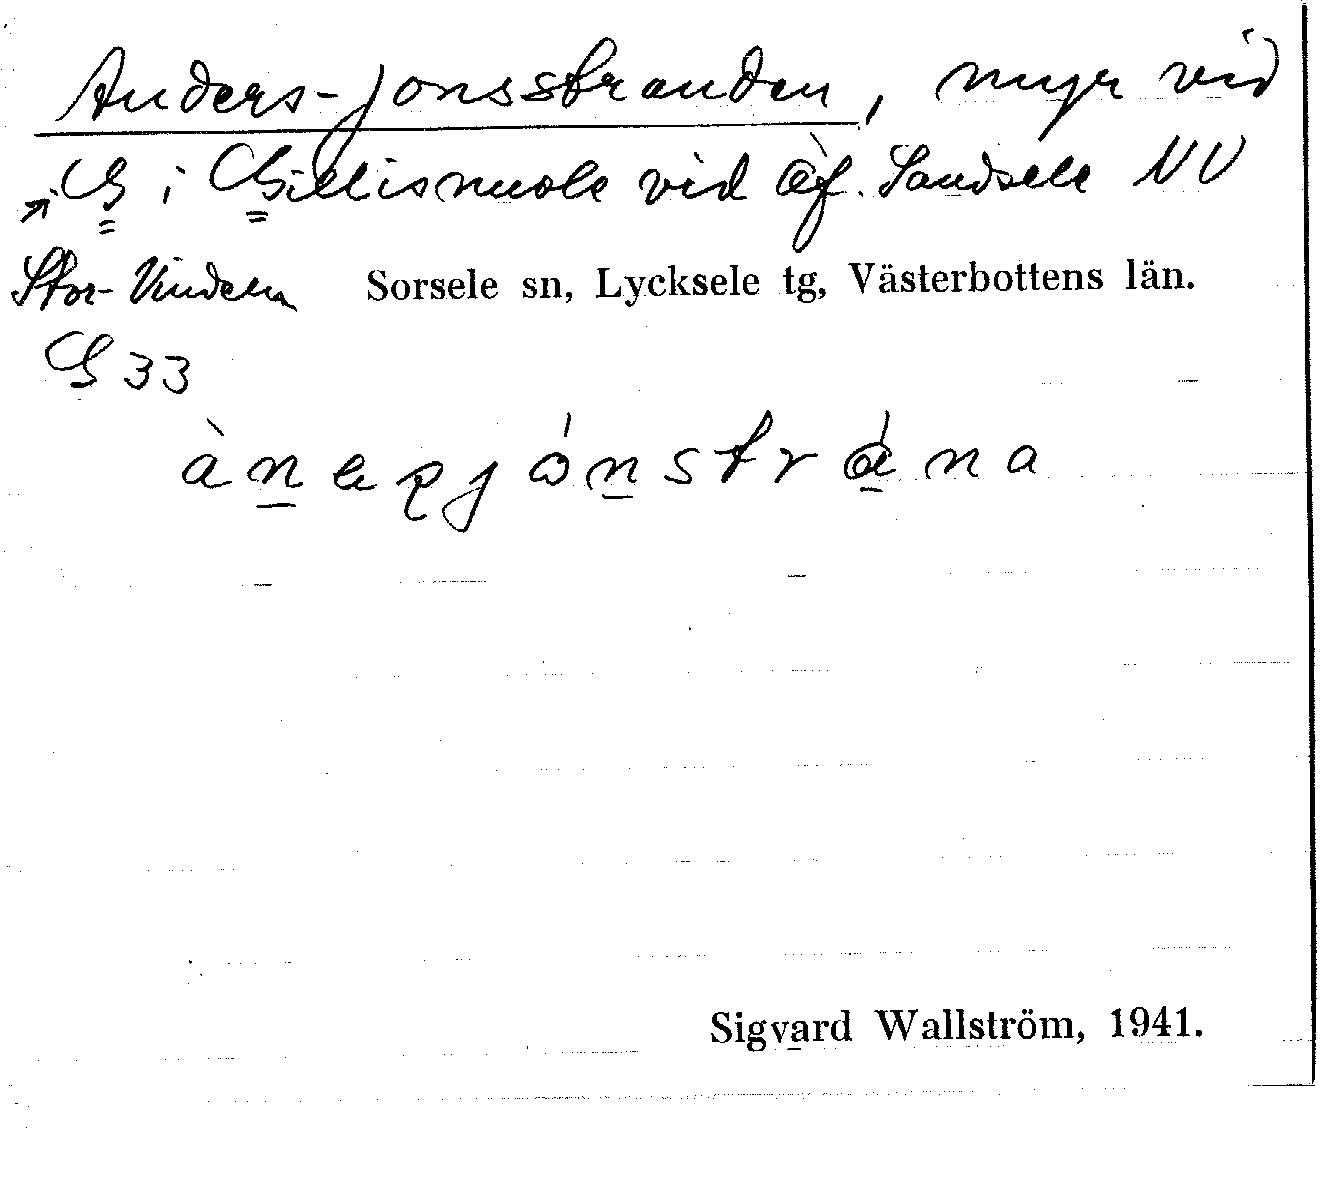 Anders-Jonsstranden, myr vid
G i Gillisnuole vid Öf. Sandsele NV
Stor-Vindeln Sorsele sn, Lycksele tg, Västerbottens län.
G 33
Sigvard Wallström, 1941.